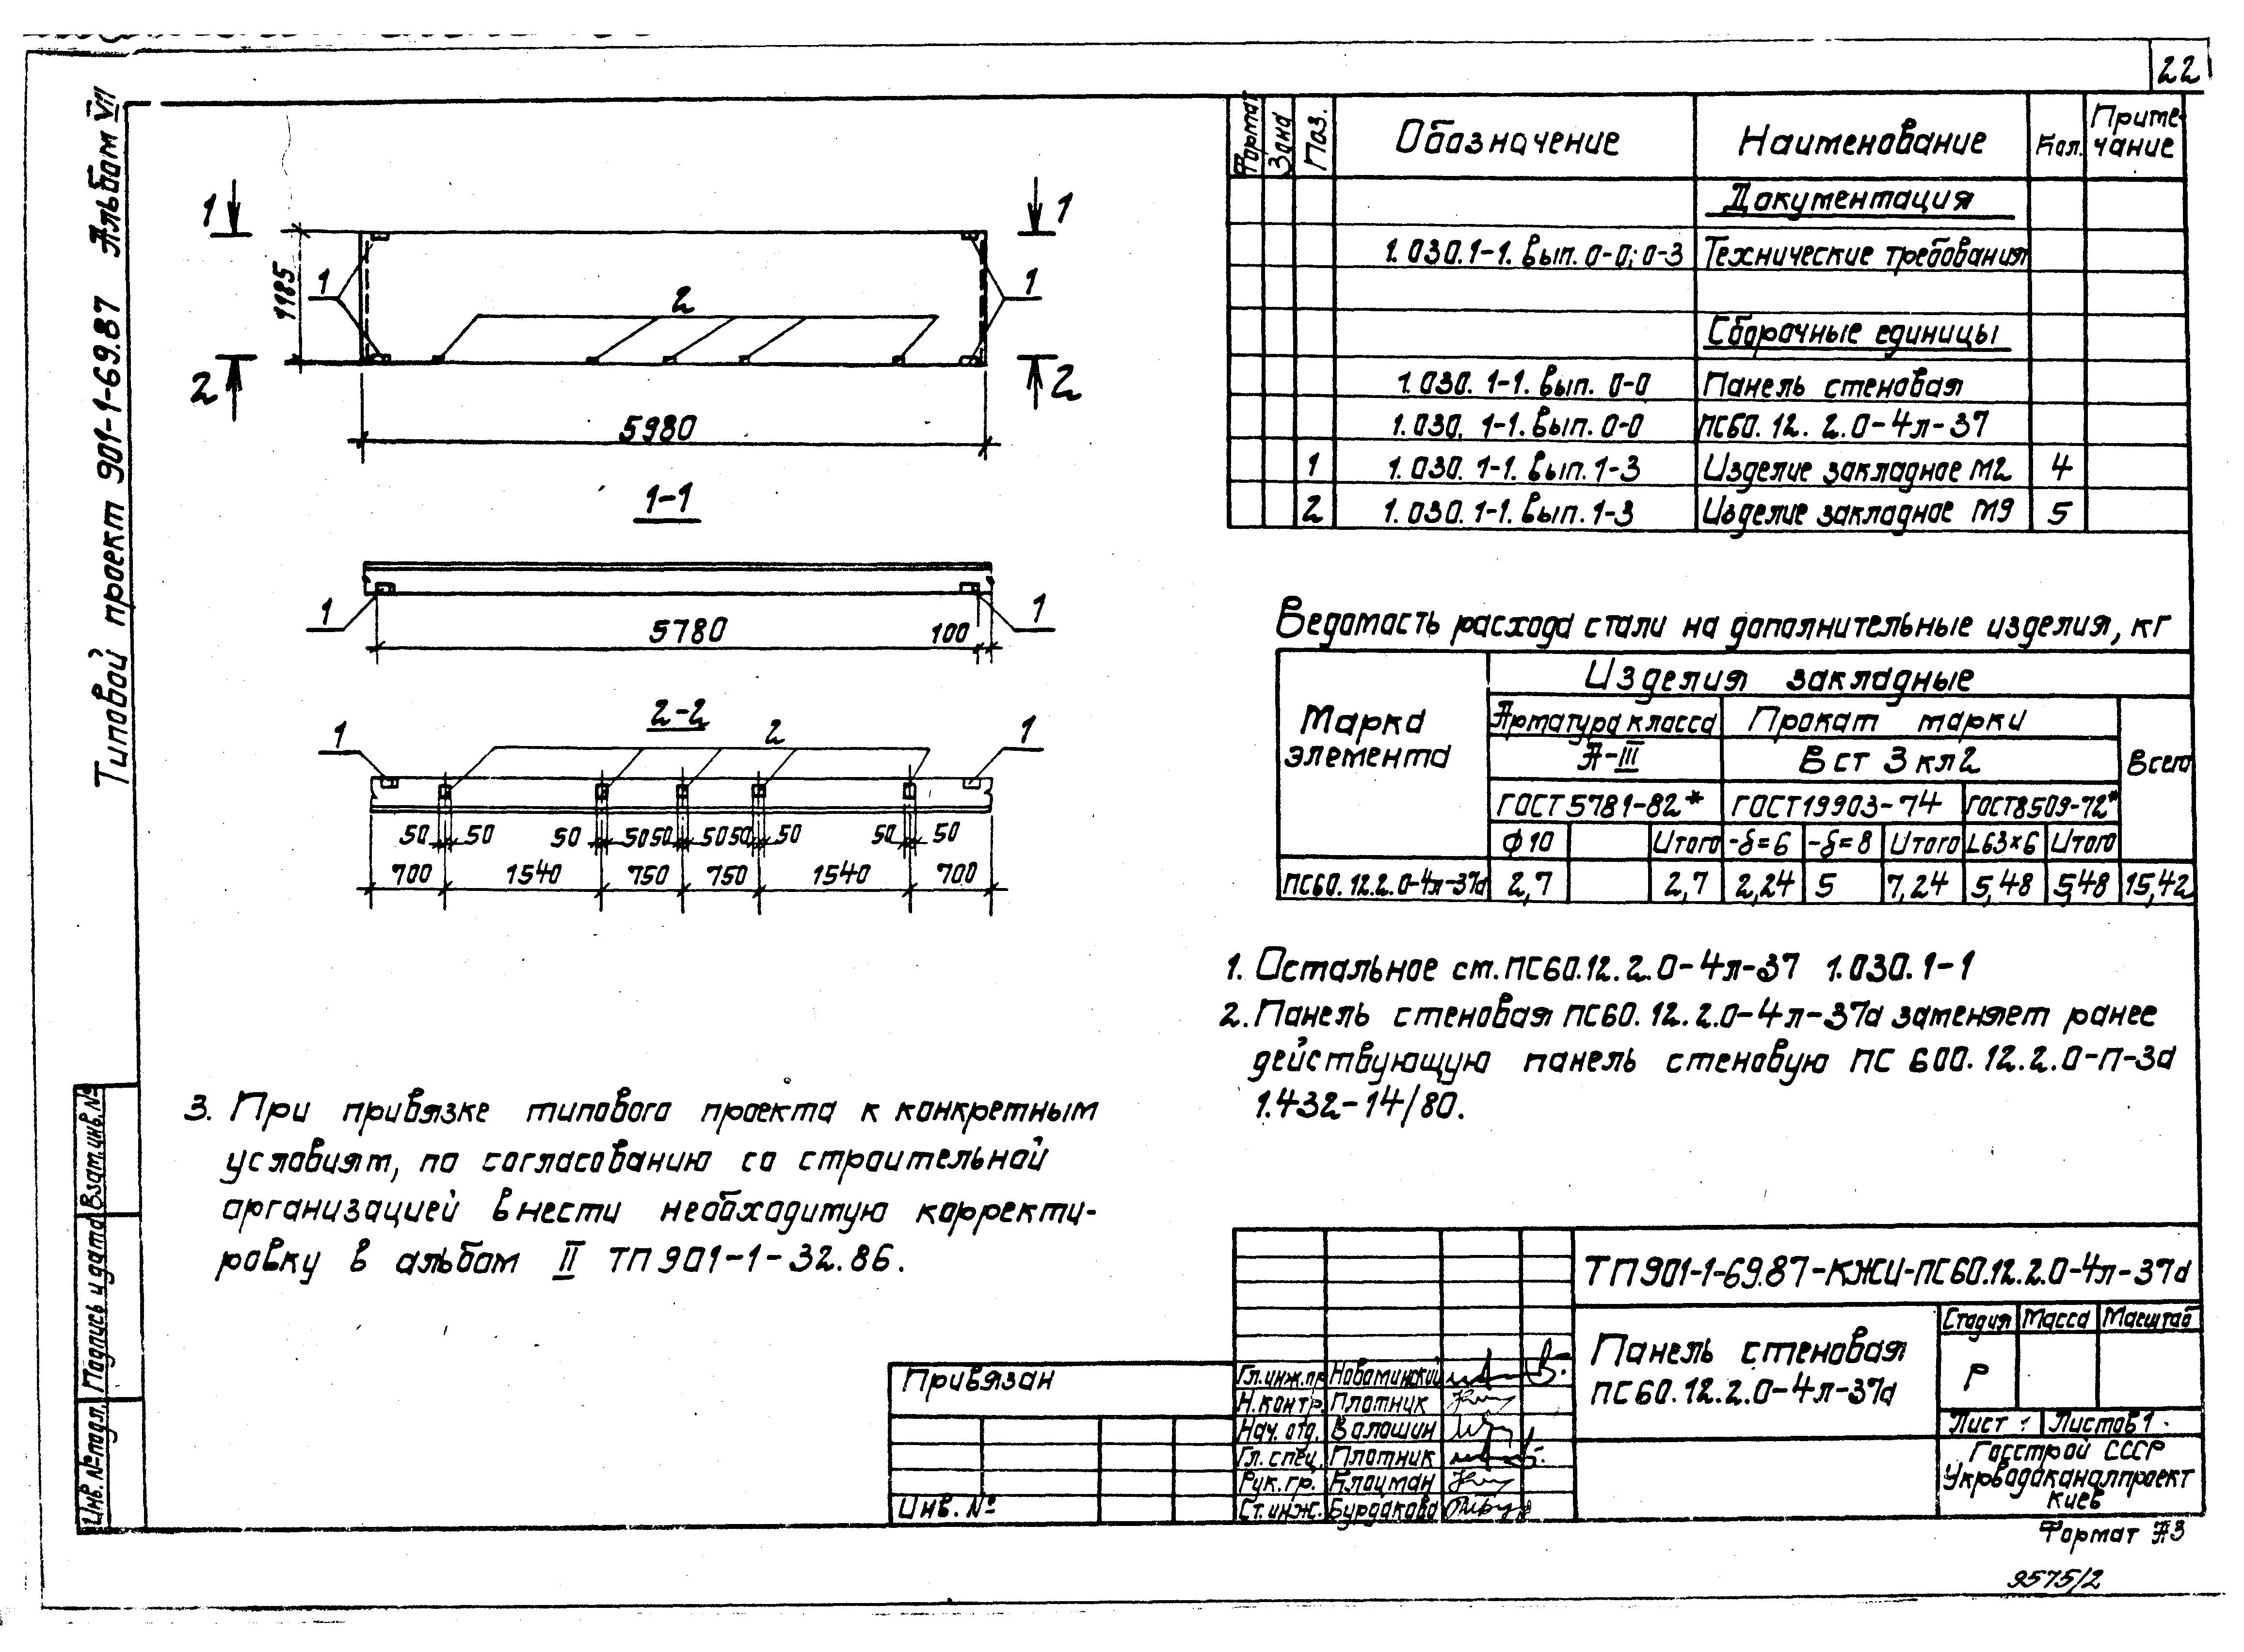 22
Типовой проект 901-1-69.87 Альбом VII
1 1
1185
1 1
2
2 2
5980
1-1
1 1
5780 100
2-2
1 2 1
50 50 50 50 50 50 50 50 50 50
700 1540 750 750 1540 700
Формат Зона Поз. Обозначение Наименование Кол. Приме-
чание
Документация
1.030.1-1. Вып. 0-0; 0-3 Технические требования
Сборочные единицы
1.030. 1-1. Вып. 0-0 Панель стеновая
1.030. 1-1. Вып. 0-0 ПС60. 12. 2.0-4л-37
1 1.030. 1-1. Вып. 1-3 Изделие закладное М2 4
2 1.030. 1-1. Вып. 1-3 Изделие закладное М9 5
Ведомость расхода стали на дополнительные изделия, кг
Марка
элемента
Изделия закладные
Арматура класса Прокат марки
А-III В ст 3 кл2 Всего
ГОСТ 5781-82* ГОСТ 19903-74 ГОСТ 8509-72*
Ф10 Итого -δ=6 -δ=8 Итого L63×6 Итого
ПС60.12.2.0-4л-37а 2,7 2,7 2,24 5 7,24 5,48 5,48 15,42
1. Остальное см. ПС60.12.2.0-4л-37 1.030.1-1
2. Панель стеновая ПС60.12.2.0-4л-37а заменяет ранее
действующую панель стеновую ПС 600.12.2.0-П-3а
1.432-14/80.
3. При привязке типового проекта к конкретным
условиям, по согласованию со строительной
организацией внести необходимую корректи-
ровку в альбом II ТП 901-1-32.86.
Инв. № подл. Подпись и дата Взам. инв. №
Привязан
Инв. №
ТП 901-1-69.87-КЖИ-ПС60.12.2.0-4л-37а
Панель стеновая
ПС60.12.2.0-4л-37а
Стадия Масса Масштаб
Р
Лист 1 Листов 1
Госстрой СССР
Укрводоканалпроект
Киев
Гл. инж. пр. Новоминский
Н. контр. Плотник
Нач. отд. Волошин
Гл. спец. Плотник
Рук. гр. Клоцман
Ст. инж. Бурдакова
Формат А3
9575/2